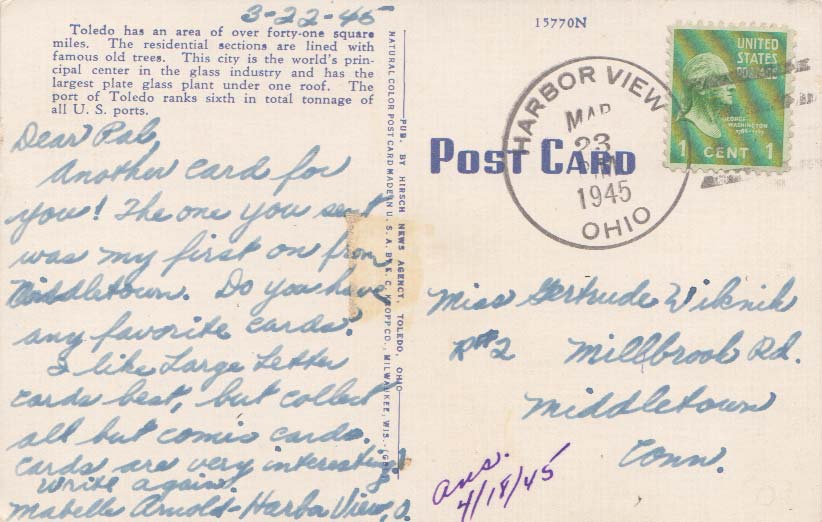 3-22-45
Toledo has an area of over forty-one square
miles. The residential sections are lined with
famous old trees. This city is the world's prin-
cipal center in the glass industry and has the
largest plate glass plant under one roof. The
port of Toledo ranks sixth in total tonnage of
all U. S. ports.
Dear Pal,
Another card for
you! The one you sent
was my first on from
Middletown. Do you have
any favorite cards.
I like Large Letter
cards best, but collect
all but comic cards.
Cards are very interesting!
Write again.
Mabelle Arnold-Harbor View, O.
NATURAL COLOR POST CARD MADE IN U. S. A. BY E. C. KROPP CO., MILWAUKEE, WIS.
PUB. BY HIRSCH NEWS AGENCY, TOLEDO, OHIO
15770N
POST CARD
HARBOR VIEW
MAR
23
1945
OHIO
UNITED
STATES
POSTAGE
GEORGE
WASHINGTON
1 CENT 1
Miss Gertrude Wiknik
R#2 Millbrook Rd.
Middletown
Conn.
ans.
4/18/45